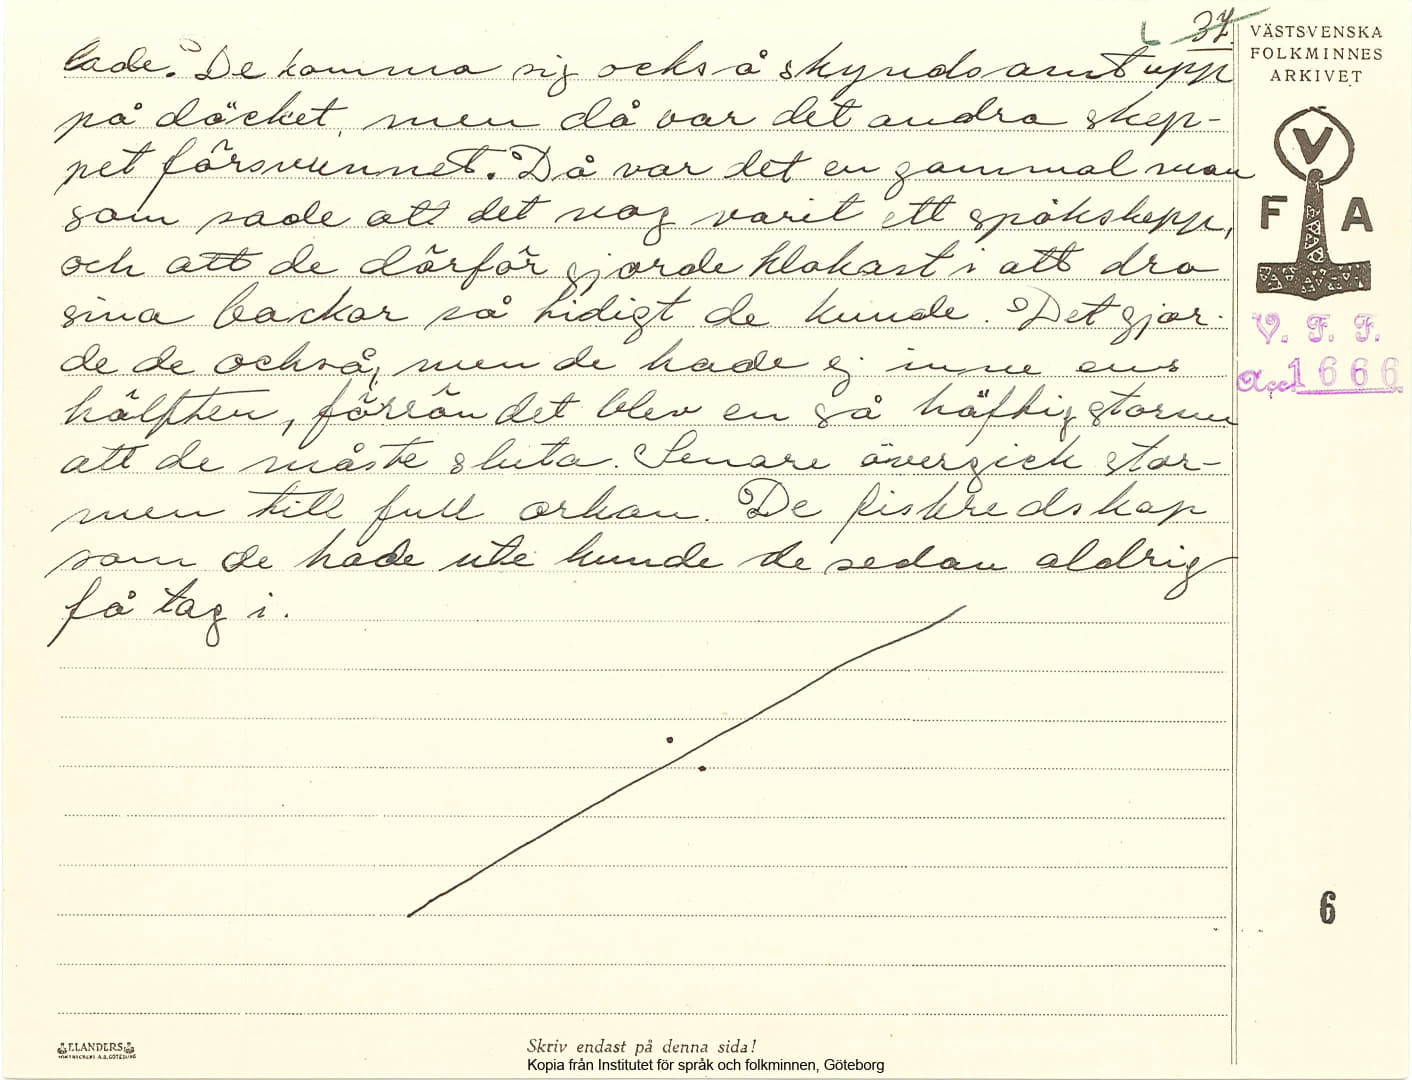 37.
VÄSTSVENSKA
FOLKMINNES
ARKIVET
lade. De komma sig också skyndsamt upp
på däcket, men då var det andra skep-
pet försvunnet. Då var det en gammal man
som sade att det nog varit ett spökskepp,
och att de därför gjorde klokast i att dra
sina backor så hidigt de kunde. Det gjor-
de de också, men de hade ej inne ens
hälften, förrän det blev en så häftig storm
att de måste sluta. Senare övergick stor-
men till full orkan. De fiskredskap
som de hade ute kunde de sedan aldrig
få tag i.
V
F A
V. F. F.
Acc. 1666
6
ELANDERS
Skriv endast på denna sida!
Kopia från Institutet för språk och folkminnen, Göteborg